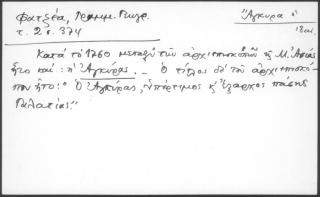 Φατζέα, Γραμμ. Γεωγρ.
"Ἄγκυρα ἡ
τ. 2 σ. 374
18αι.
Κατὰ τὸ 1760 μεταξὺ τῶν ἀρχιεπισκοπῶν τῆς Μ. Ἀσίας
ἦτο καὶ : ἡ Ἀγκύρας. _ Ὁ τίτλος δὲ τοῦ ἀρχιεπισκό-
που ἦτο: Ὁ Ἀγκύρας, ὑπέρτιμος κ' ἔξαρχος πάσης
Γαλατίας."